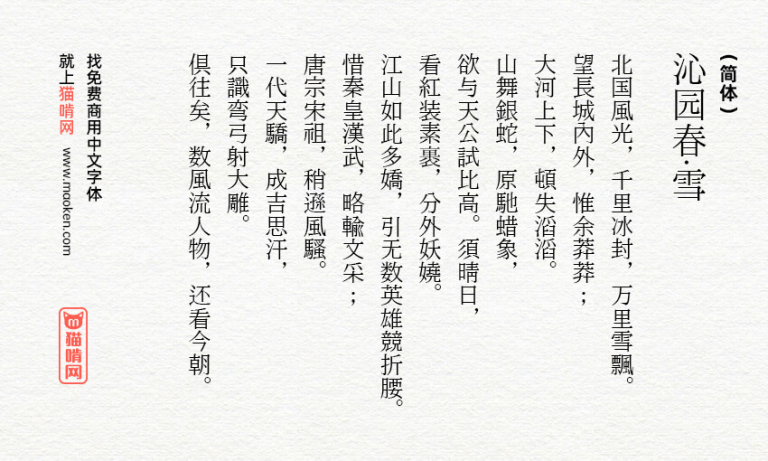 （简体）
沁园春·雪
北国風光，千里冰封，万里雪飄。
望長城內外，惟余莽莽；
大河上下，頓失滔滔。
山舞銀蛇，原馳蜡象，
欲与天公試比高。須晴日，
看紅装素裹，分外妖嬈。
江山如此多嬌，引无数英雄競折腰。
惜秦皇漢武，略輸文采；
唐宗宋祖，稍遜風騷。
一代天驕，成吉思汗，
只識弯弓射大雕。
俱往矣，数風流人物，还看今朝。
找免费商用中文字体
就上猫啃网 www.mooken.com
猫啃网